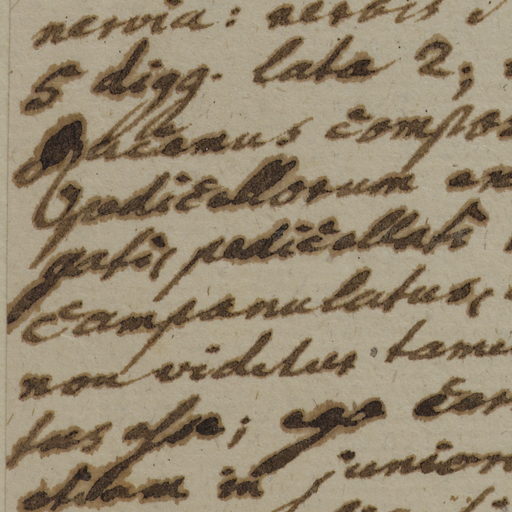 nervia: nerbis
5 digg. lata 2;
Racemus compos
pedicellorum en
gatis, pedicellati
campanulatus,
non videtur tame
tus esse; ego cor
etiam in junior